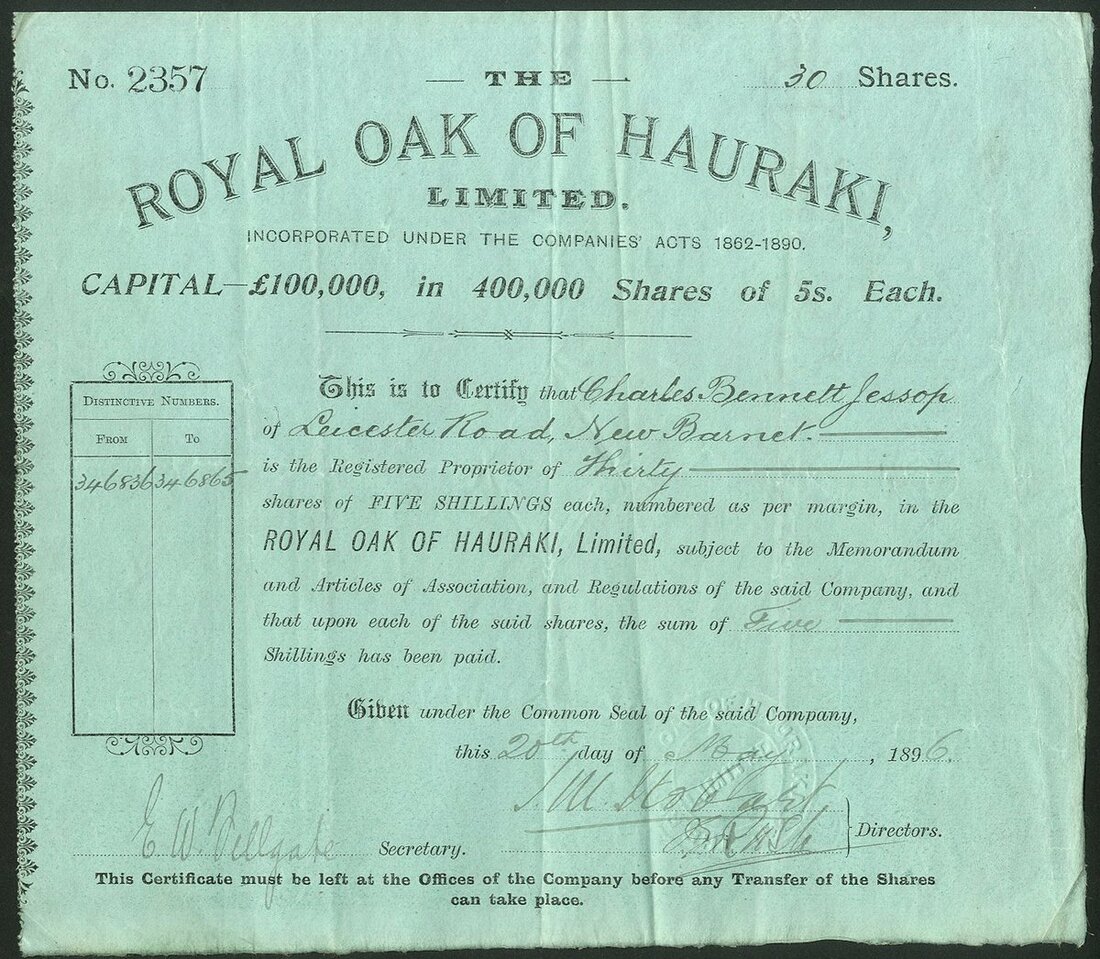 No. 2357
THE
30 Shares.
ROYAL OAK OF HAURAKI,
LIMITED.
INCORPORATED UNDER THE COMPANIES' ACTS 1862-1890.
CAPITAL—£100,000, in 400,000 Shares of 5s. Each.
DISTINCTIVE NUMBERS.
FROM TO
346836 346865
This is to Certify that Charles Bennett Jessop
of Leicester Road, New Barnet.
is the Registered Proprietor of Thirty
shares of FIVE SHILLINGS each, numbered as per margin, in the
ROYAL OAK OF HAURAKI, Limited, subject to the Memorandum
and Articles of Association, and Regulations of the said Company, and
that upon each of the said shares, the sum of Five
Shillings has been paid.
Given under the Common Seal of the said Company,
this 20th day of May, 1896.
Directors.
E. W. Secretary.
This Certificate must be left at the Offices of the Company before any Transfer of the Shares
can take place.